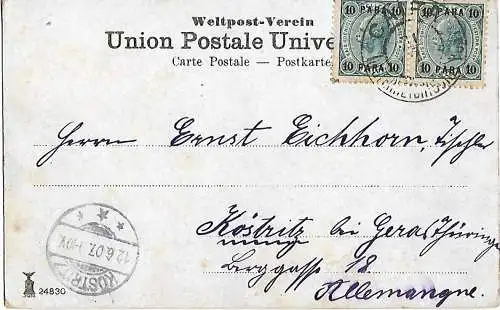 Weltpost-Verein
Union Postale Unive
Carte Postale — Postkarte
10 PARA 10
10 PARA 10
10 PARA 10
10 PARA 10
Herrn Ernst Eichhorn, Tischler
Köstritz bei Gera Thüringe
Berggasse 18
Allemangne.
KÖSTRITZ
12.6.07. 1-10V.
24830